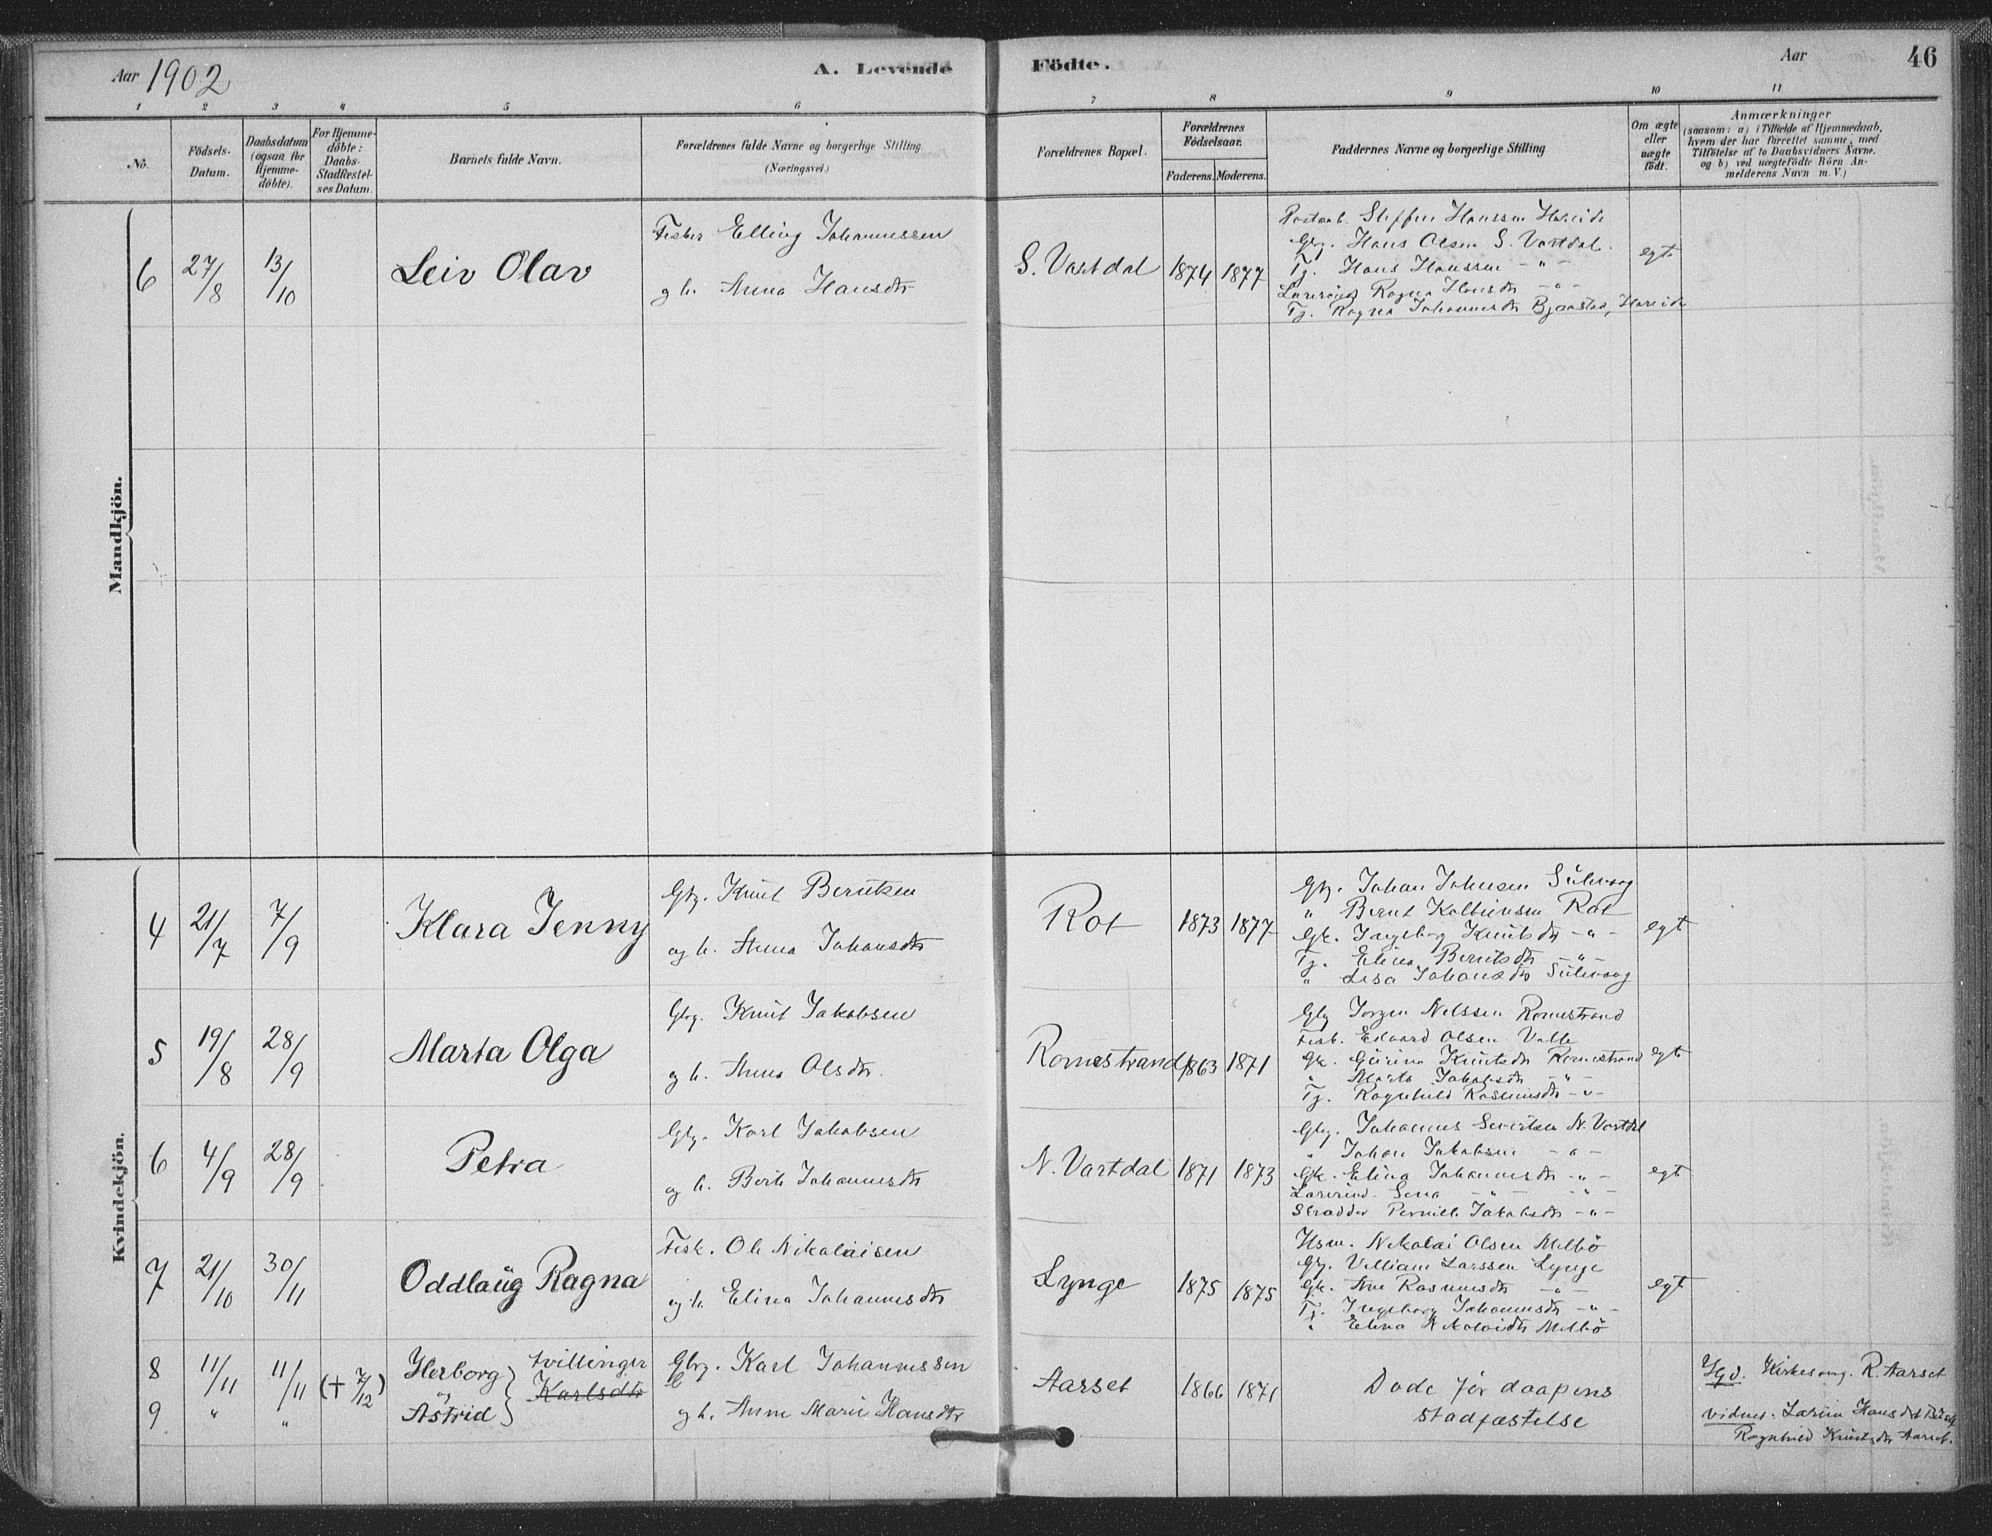 Aar 1902 A. Levende Födte. Aar 46
1 2 3 4 5 6 7 8 9 10 11
No.
Födsels-Datum.
Daabsdatum (ogsaa for Hjemme-döbte).
For Hjemme-döbte: Daabs-Stadfæstel-ses Datum.
Barnets fulde Navn.
Forældrenes fulde Navne og borgerlige Stilling. (Næringsvei.)
Forældrenes Bopæl.
Forældrenes Födselsaar.
Faderens. Moderens.
Faddernes Navne og borgerlige Stilling
Om ægte eller uægte födt.
Anmærkninger
(saasom: a) i Tilfælde af Hjemmedaab,
hvem der har forrettet samme, med
Tilföielse af to Daabsvidners Navne.
og b) ved uægtefödte Börn An-
melderens Navn m. V.)
Mandkjön.
6 27/8 13/10 Leiv Olav
Fisker Elling Johannessen
og h. Anna Hansdtr
S. Vartdal 1874 1877
Steffen Hanssen Hareide
Gbr. Hans Olsen S. Vartdal.
Tj. Hans Hanssen - " -
Ragna Hansdtr - " -
Tj. Ragna Johannesdtr Bjaastad, Hareide
egt
Kvindekjön.
4 21/7 7/9 Klara Jenny
Gbr. Knut Berntsen
og h. Anna Johansdtr
Rot 1873 1877
Gbr. Johan Johnsen Sülevaag
" Bernt Kolbeinsen Rot
Gk. Ingeborg Knutsdtr - " -
Tj. Elina Berntsdtr - " -
" Lisa Johansdtr Sülevaag
egt
5 19/8 28/9 Marta Olga
Gbr. Knut Jakobsen
og h. Anna Olsdtr.
Romestrand 1863 1871
Gbr Jørgen Nilssen Romestrand
Fisk. Edvard Olsen Valle
Gk. Gurina Knutsdtr Romestrand
" Marta Jakobsdtr - " -
Tj. Ragnhild Rasmusdtr - " -
egt
6 4/9 28/9 Petra
Gbr. Karl Jakobsen
og h. Berte Johannesdtr
N. Vartdal 1871 1873
Gbr. Johannes Sivertsen N. Vartdal
" Johan Jakobsen - " -
Gk. Elina Johannesdtr - " -
Lærerind. Sina - " - - " -
Pernille Jakobsdtr - " -
egt
7 21/10 30/11 Oddlaüg Ragna
Fisk. Ole Nikolaisen
og h. Elina Johannesdtr
Lynge 1875 1875
Hsm. Nikolai Olsen Melbö
Gbr. Villiam Larssen Lynge
Gk. Ane Rasmusdtr - " -
Tj. Ingeborg Johannesdtr - " -
" Elina Nikolaidtr Melbö
egt
8 11/11 11/11 (+ 7/12) Herborg } tvillinger
og Karlsdtr
9 " " Astrid
Gbr. Karl Johannessen
og h. Anne Marie Hansdtr
Aarset 1866 1871
Döde för daapens
stadfæstelse
Hjd. Kirkesang. R. Aarset
vidner. Hansdtr
Ragnhild Knutsdtr Aarset.